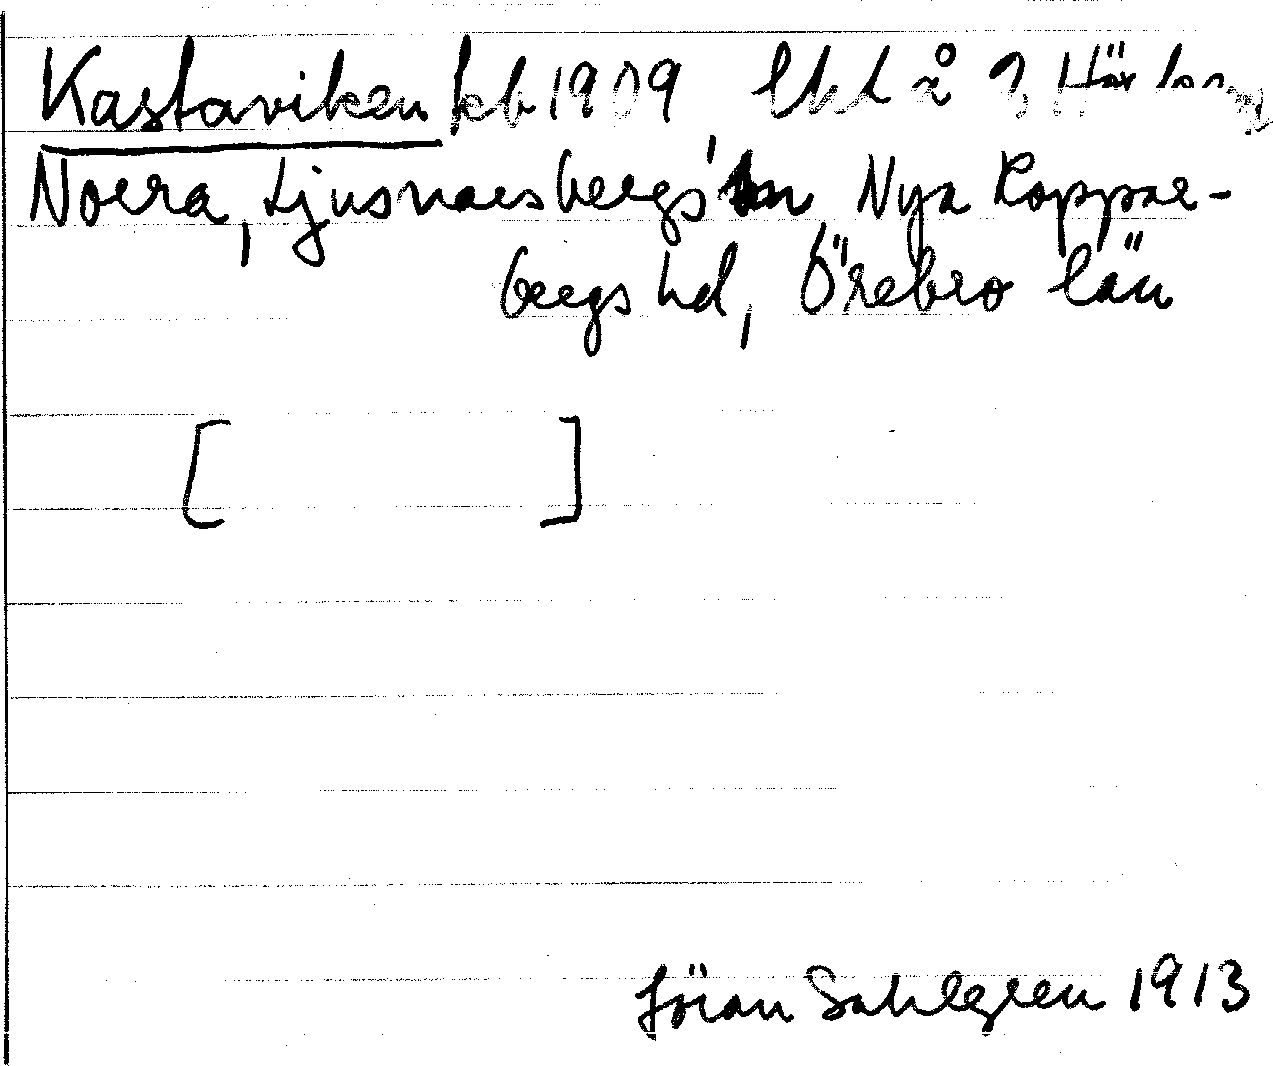 Kastaviken kb 1909 lht å
Norra, Ljusnarsbergs sn Nya Koppar-
bergs hd, Örebro län
[ ]
Jöran Sahlgren 1913